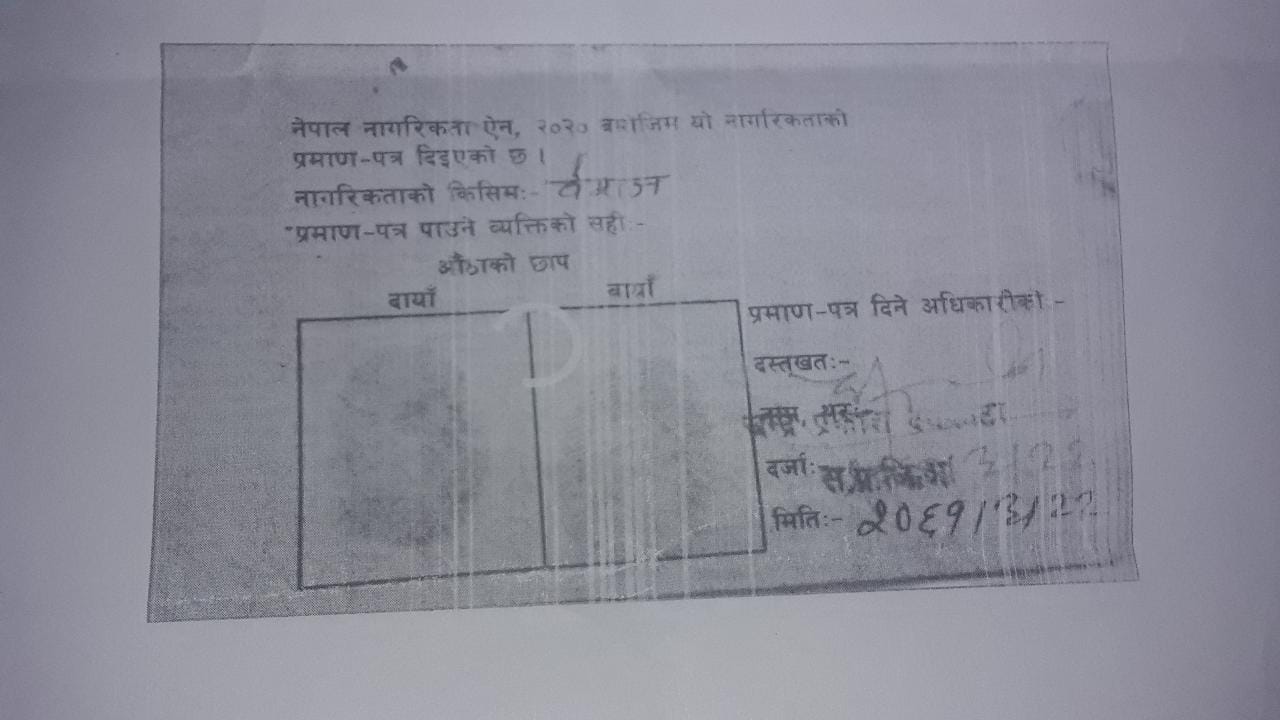 नेपाल नागरिकता ऐन, २०२० बमोजिम यो नागरिकताको
प्रमाण-पत्र दिइएको छ ।
नागरिकताको किसिमः- वंशज
प्रमाण-पत्र पाउने व्यक्तिको सही:-
औंठाको छाप
दायाँ बायाँ
प्रमाण-पत्र दिने अधिकारीको:-
दस्तखतः-
नाम, थरः-
दर्जाः
मितिः- २०६१/३/२२